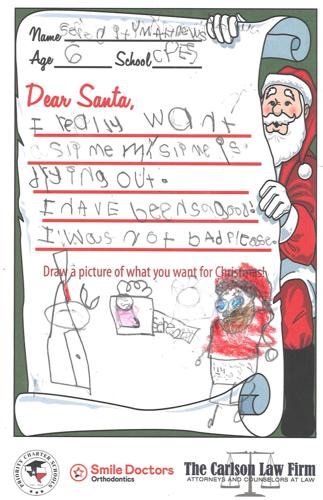 Name Matthews
Age 6 School CPES
Dear Santa,
I really want
slime my slime is
drying out.
I HAVE been so good!
I was not bad please.
Draw a picture of what you want for Christmas!
PRIORITY CHARTER SCHOOLS
Smile Doctors
Orthodontics
The Carlson Law Firm
ATTORNEYS AND COUNSELORS AT LAW